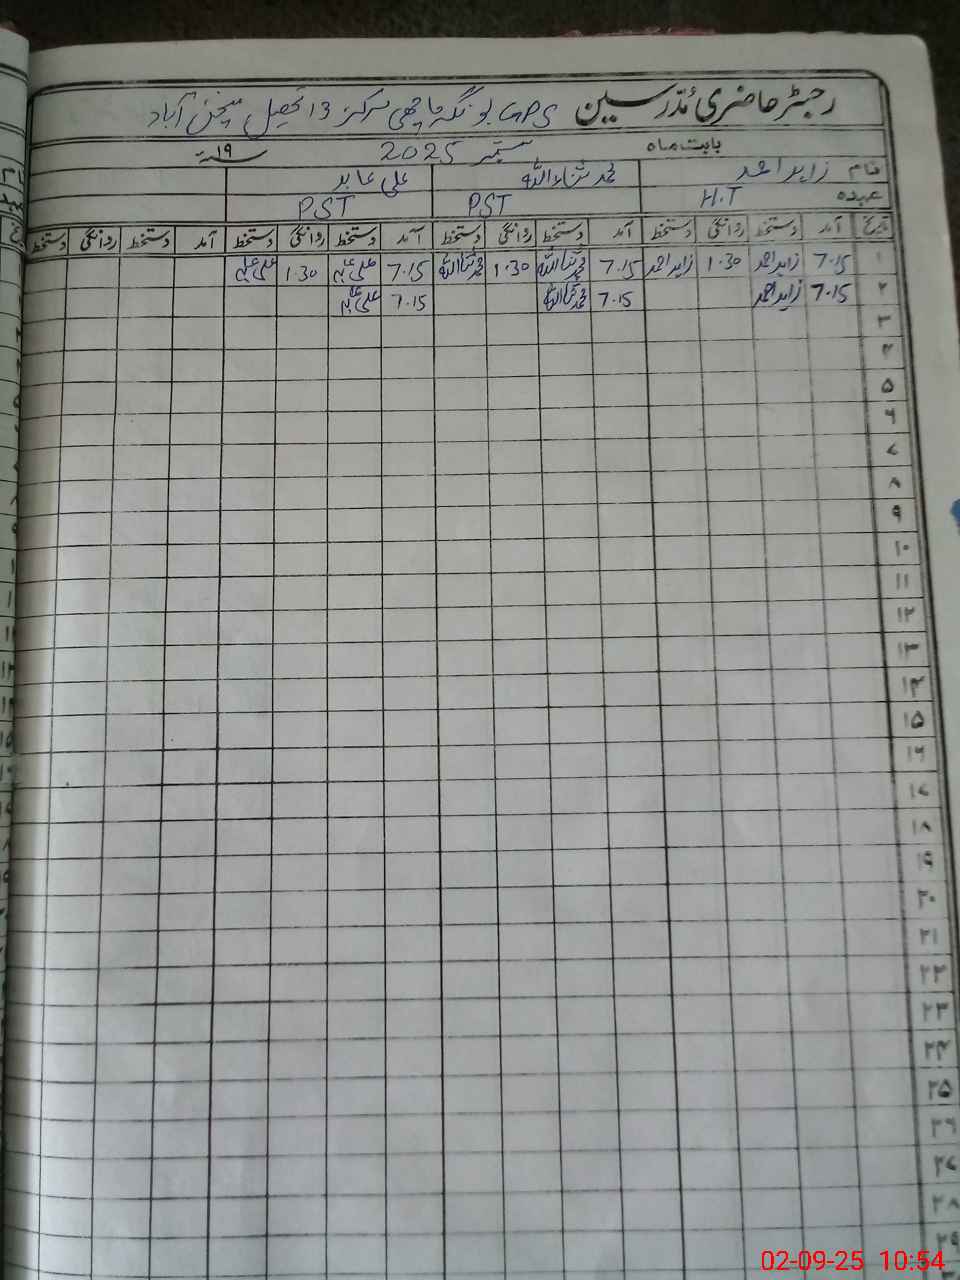 رجسٹر حاضری مُدّرسین GPS بونگہ ماچھی مرکز 13 تحصیل منچن آباد
بابت ماہ ستمبر 2025 ۱۹ سنہ
نام زاہد احمد محمد ثناءاللہ علی عابد
عہدہ H.T PST PST
تاریخ آمد دستخط روانگی دستخط آمد دستخط روانگی دستخط آمد دستخط روانگی دستخط آمد دستخط روانگی دستخط
۱ 7.15 زاہد احمد 1.30 زاہد احمد 7.15 محمد ثناءاللہ 1.30 محمد ثناءاللہ 7.15 علی عابد 1.30 علی عابد
۲ 7.15 زاہد احمد 7.15 محمد ثناءاللہ 7.15 علی عابد
۳
۴
۵
۶
۷
۸
۹
۱۰
۱۱
۱۲
۱۳
۱۴
۱۵
۱۶
۱۷
۱۸
۱۹
۲۰
۲۱
۲۲
۲۳
۲۴
۲۵
۲۶
۲۷
۲۸
۲۹
02-09-25 10:54